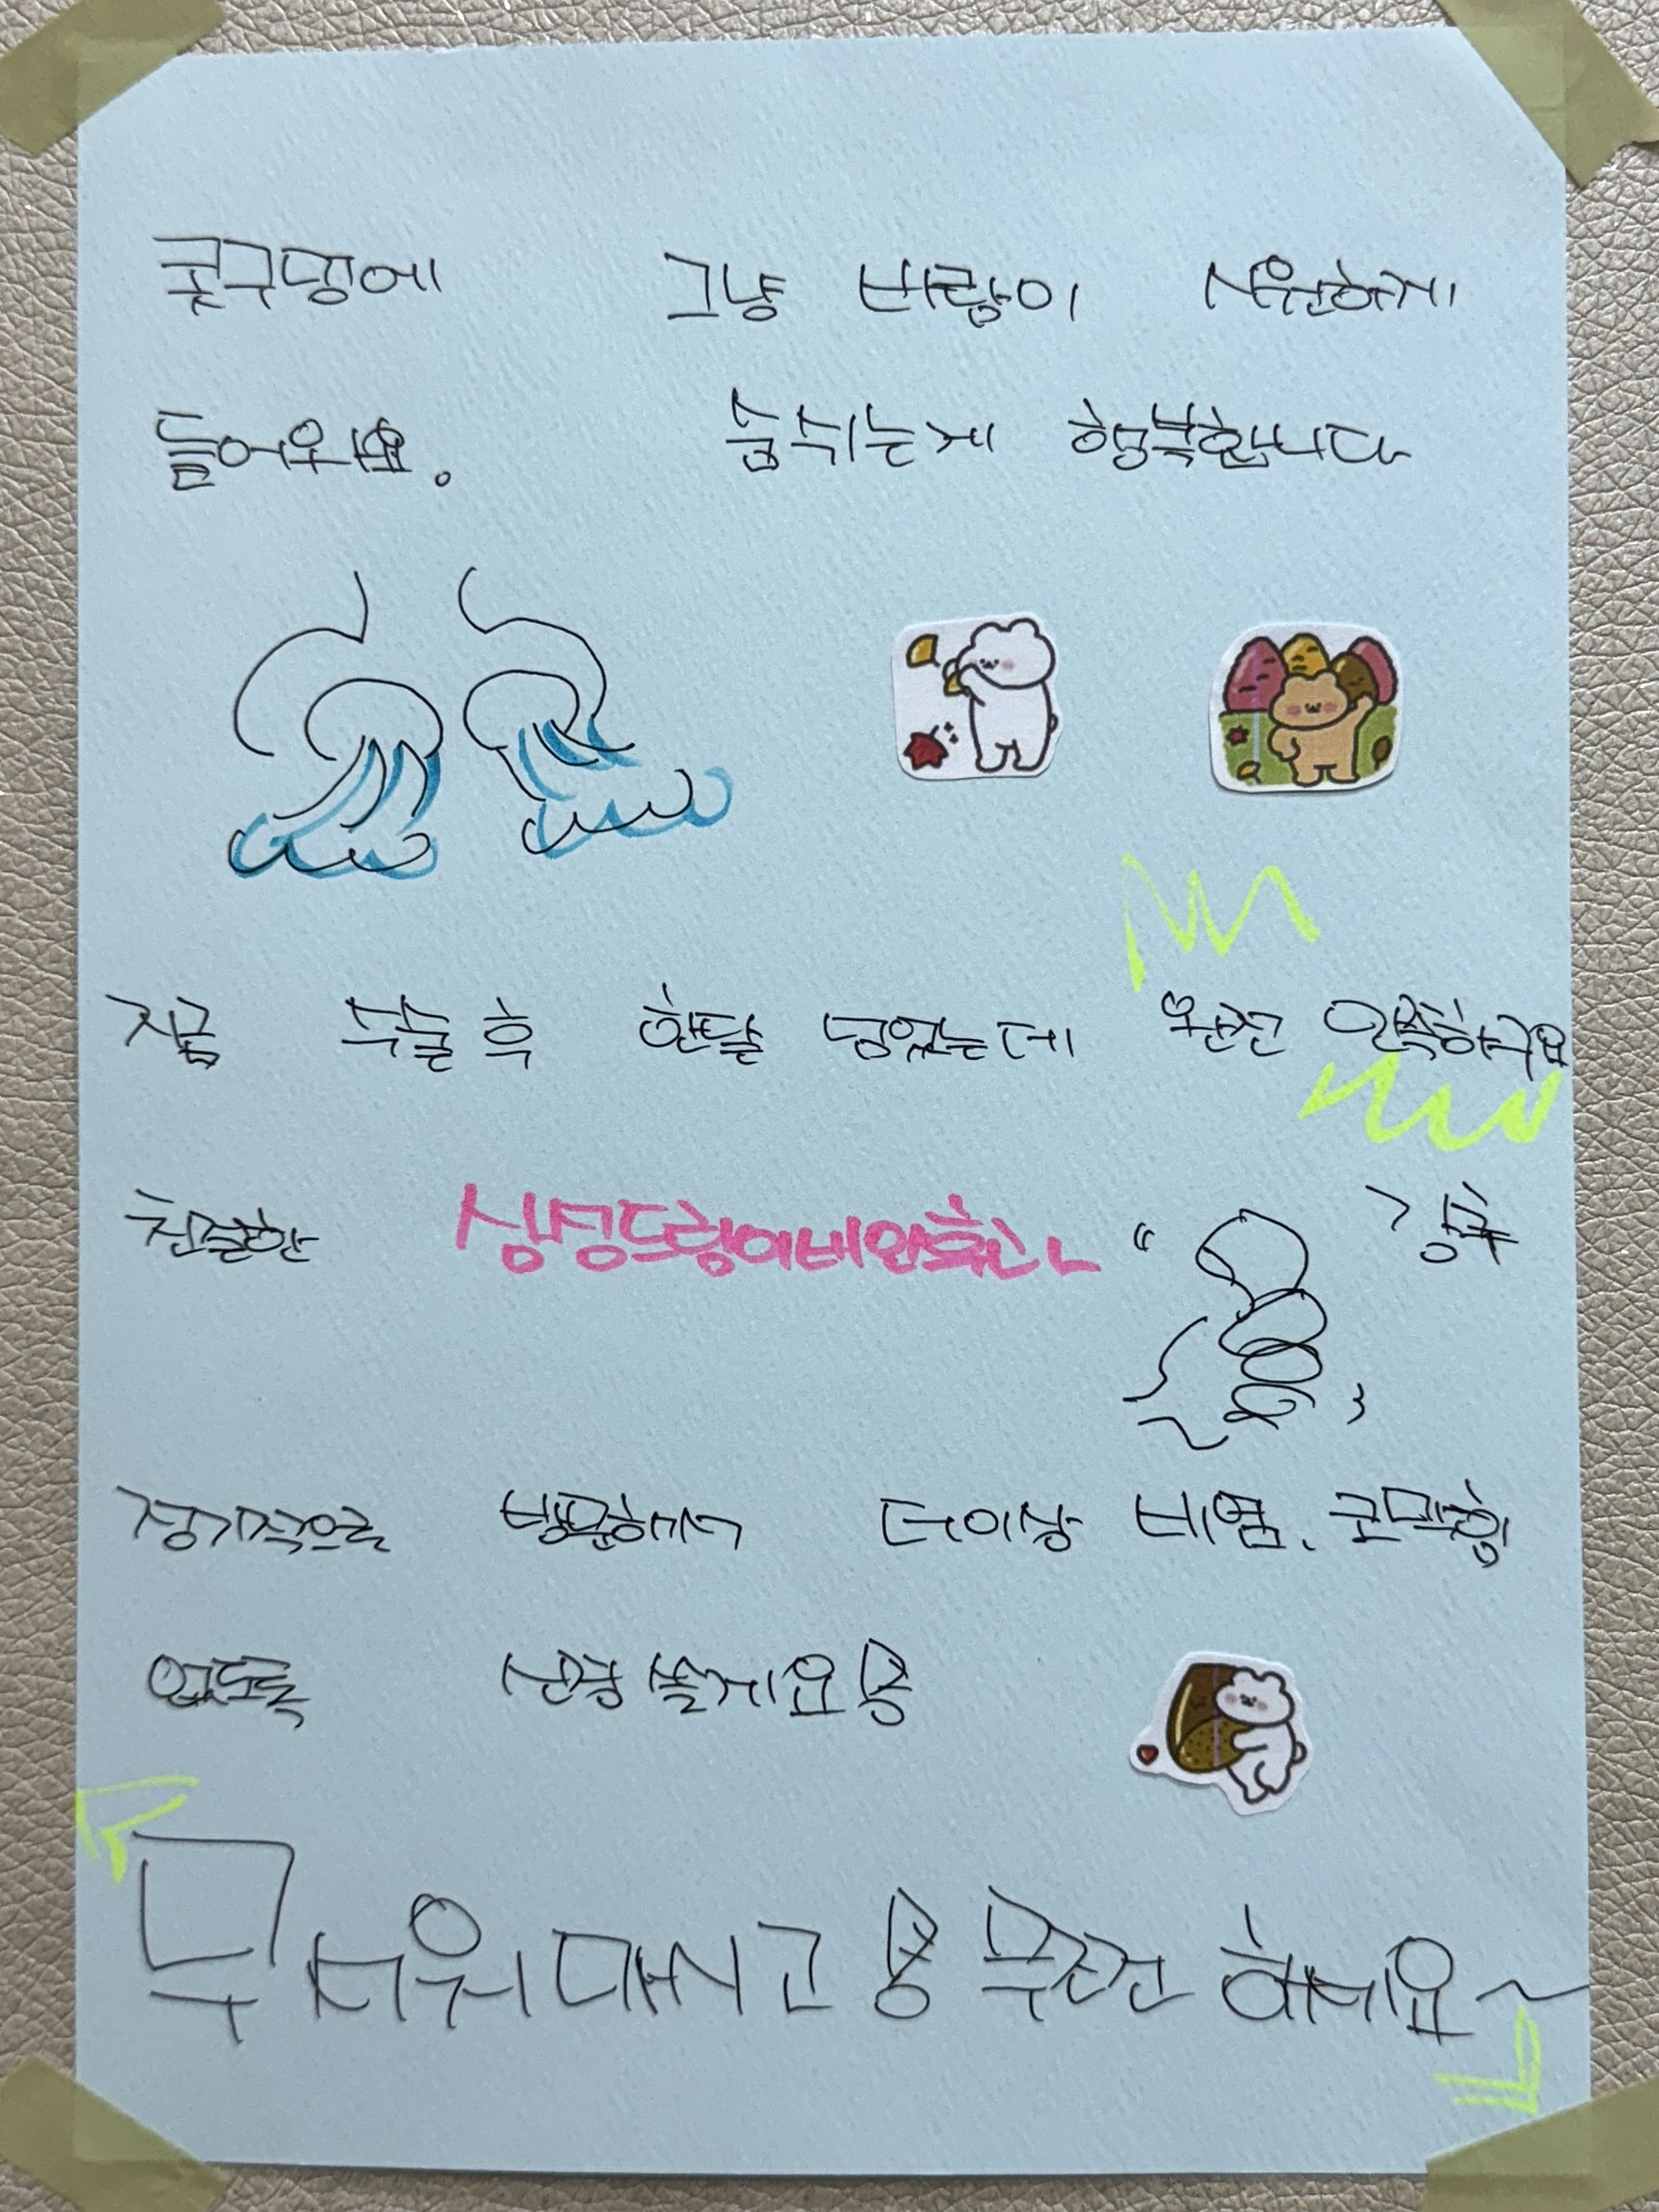 콧구멍에 그냥 바람이 시원하게
들어와요. 숨쉬는게 행복합니다
지금 수술 후 한달 넘었는데 완전 만족하구요
친절한 강추
정기적으로 방문해서 더이상 비염, 코막힘
없도록 신경 쓸게요
무서워 마시고 꼭 무조건 하세요~